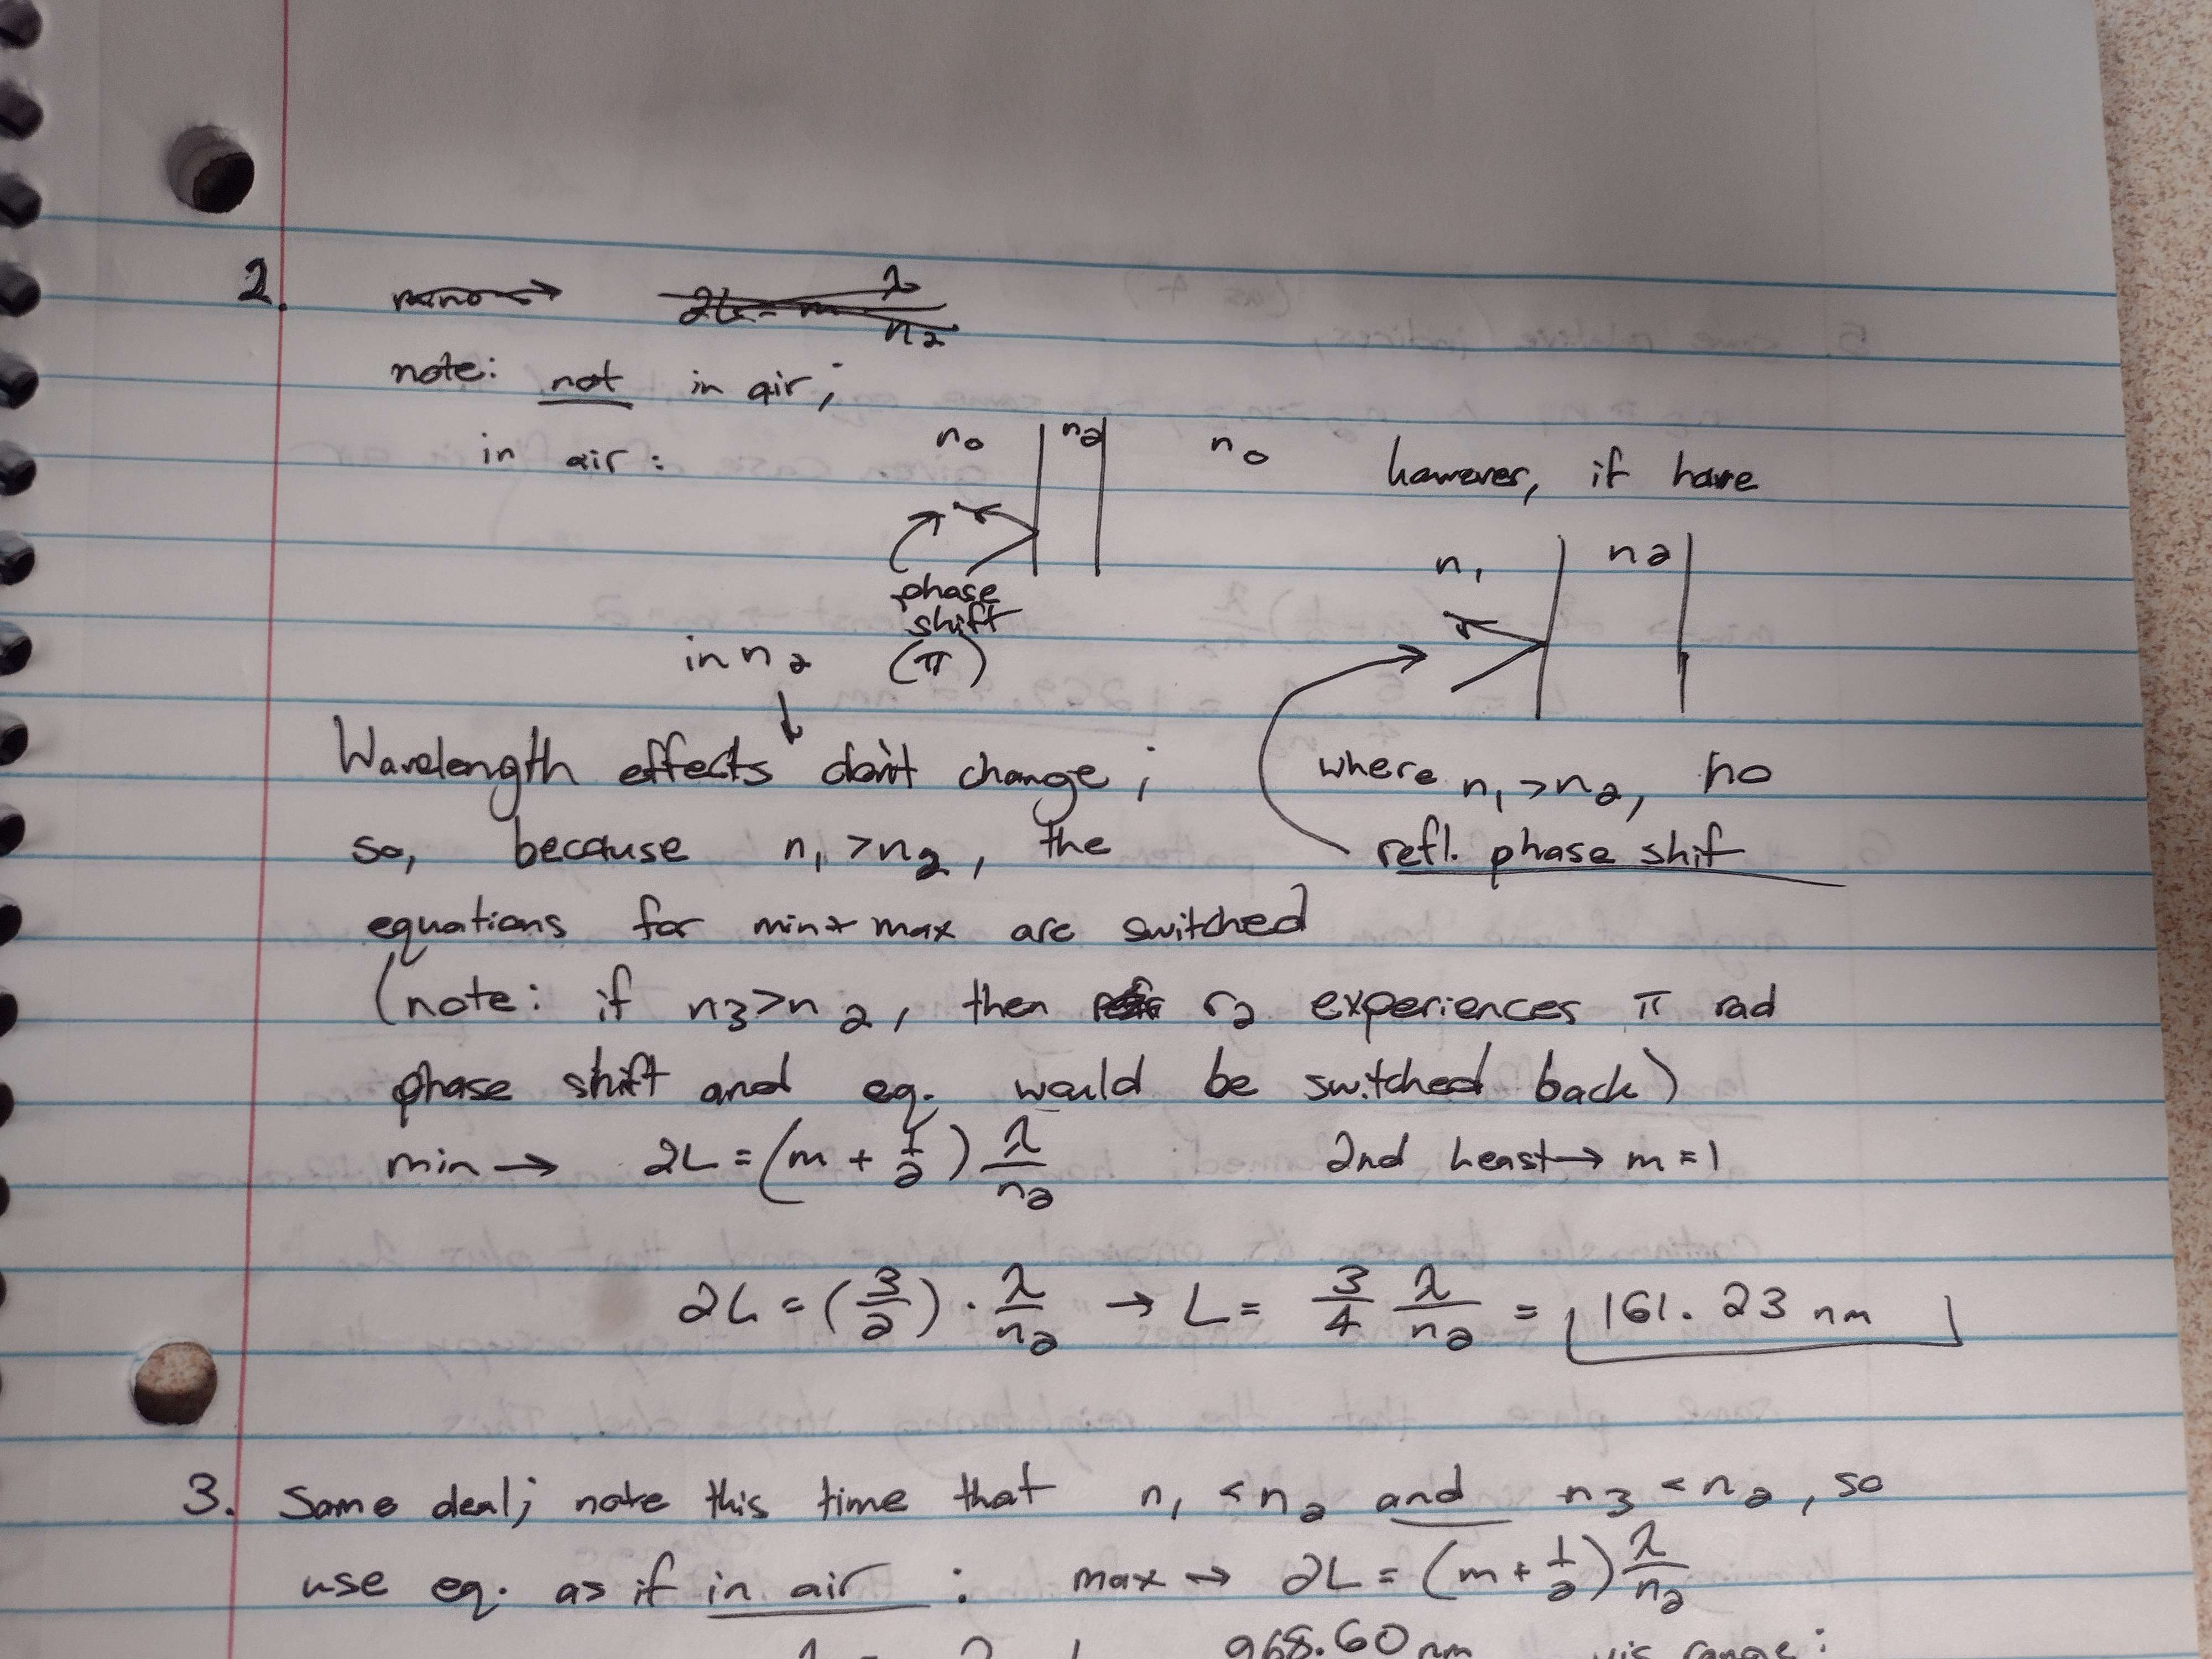 2.
2L = m λ/n₂
note: not in air;
in air: n₀ n₂ n₀ however, if have
n₁ n₂
phase
shift
in n₂ (π)
Wavelength effects don't change;
where n₁ > n₂, no
so, because n₁ > n₂, the
refl. phase shif
equations for min + max are switched
(note: if n₃ > n₂, then r₂ experiences π rad
phase shift and eq. would be switched back)
min → 2L = (m + 1/2) λ/n₂ 2nd least → m = 1
2L = (3/2) · λ/n₂ → L = 3/4 λ/n₂ = 161.23 nm
3. Same deal; note this time that n₁ < n₂ and n₃ < n₂, so
use eq. as if in air : max → 2L = (m + 1/2) λ/n₂
968.60 nm vis range: